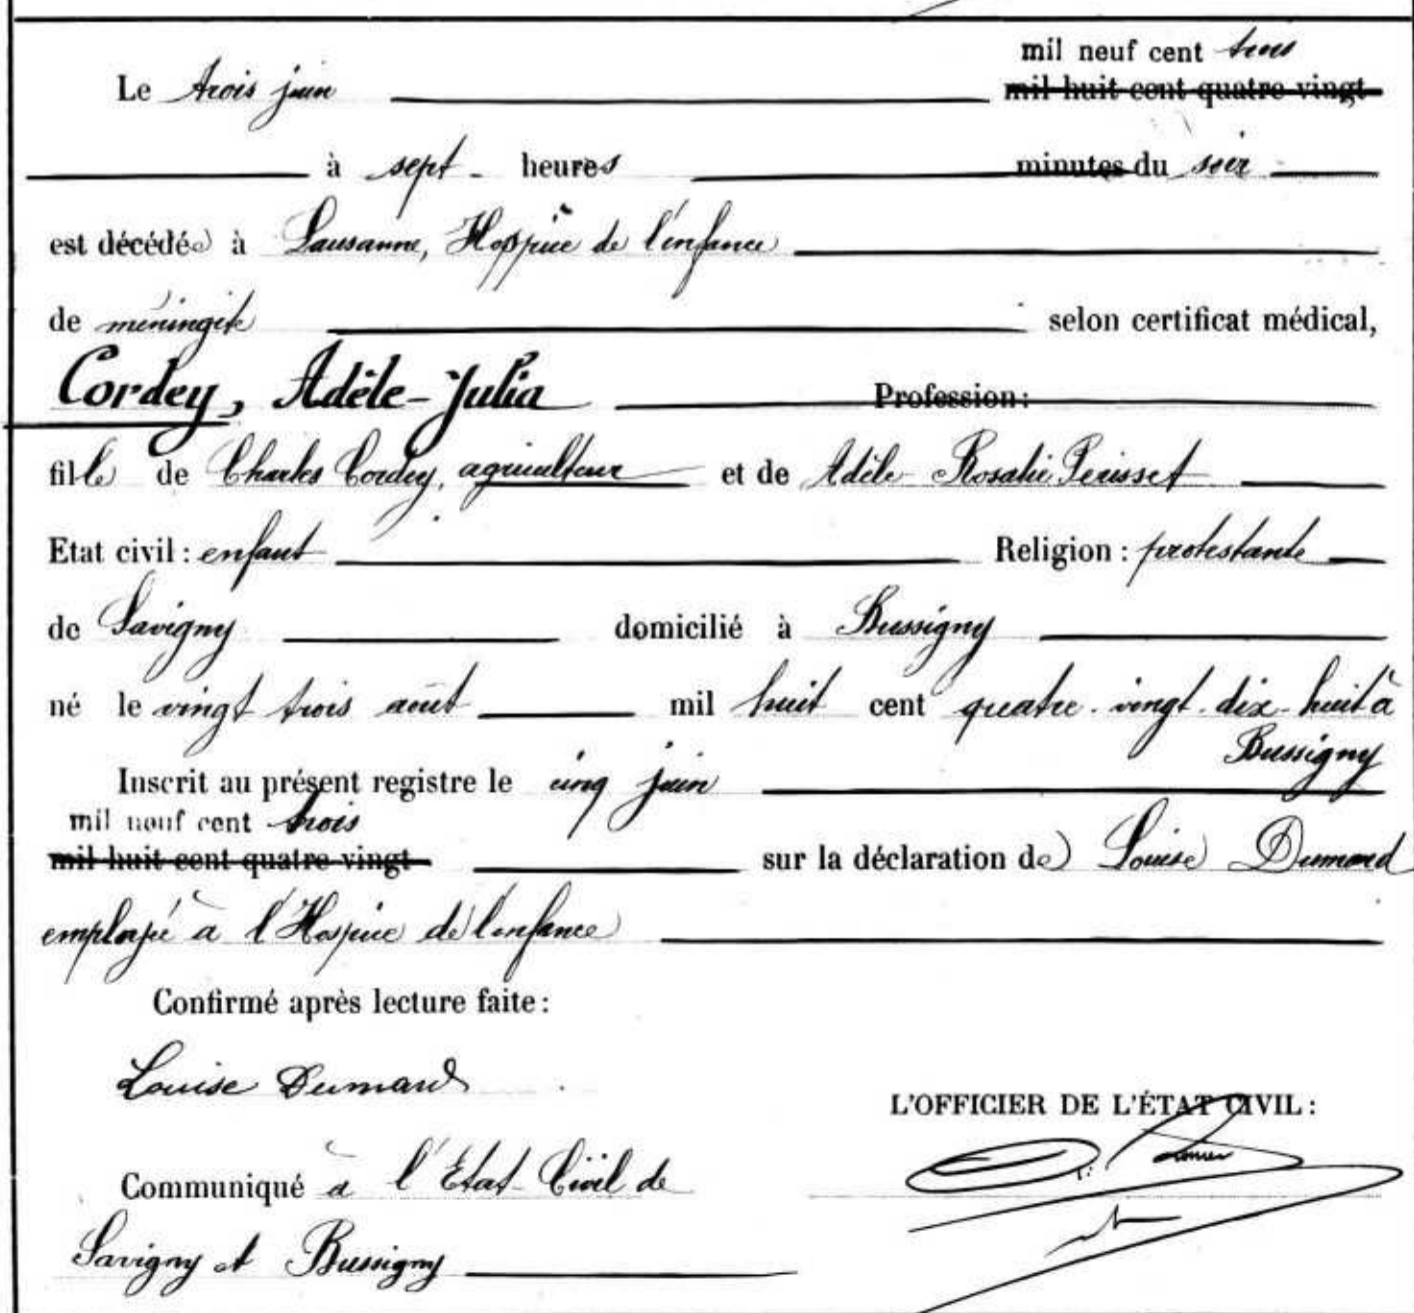 mil neuf cent trois
Le trois juin mil huit cent quatre vingt
à sept heures minutes du soir
est décédée à Lausanne, Hospice de l'enfance
de méningite selon certificat médical,
Cordey, Adèle-Julia Profession:
fille de Charles Cordey, agriculteur et de Adèle Rosalie Perisset
Etat civil : enfant Religion : protestante
de Savigny domicilié à Bussigny
né le vingt trois août mil huit cent quatre-vingt-dix-huit à
Bussigny
Inscrit au présent registre le cinq juin
mil neuf cent trois
mil huit cent quatre vingt sur la déclaration de Louise Dumard
employée à l'Hospice de l'enfance
Confirmé après lecture faite :
Louise Dumard
L'OFFICIER DE L'ÉTAT CIVIL :
Communiqué à l'Etat Civil de
Savigny et Bussigny